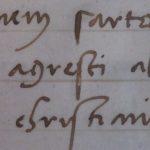 nem sarto
agresti a
christiani